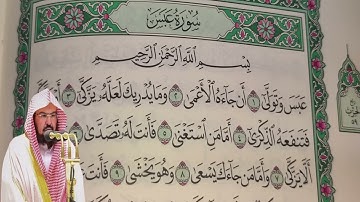 سُورَةُ عَبَسَ
بِسْمِ اللَّهِ الرَّحْمَٰنِ الرَّحِيمِ
عَبَسَ وَتَوَلَّىٰ ١ أَن جَاءَهُ الْأَعْمَىٰ ٢ وَمَا يُدْرِيكَ لَعَلَّهُ يَزَّكَّىٰ ٣ أَوْ
فَتَنفَعَهُ الذِّكْرَىٰ ٤ أَمَّا مَنِ اسْتَغْنَىٰ ٥ فَأَنتَ لَهُ تَصَدَّىٰ ٦
أَلَّا يَزَّكَّىٰ ٧ وَأَمَّا مَن جَاءَكَ يَسْعَىٰ ٨ وَهُوَ يَخْشَىٰ ٩ فَأَنتَ